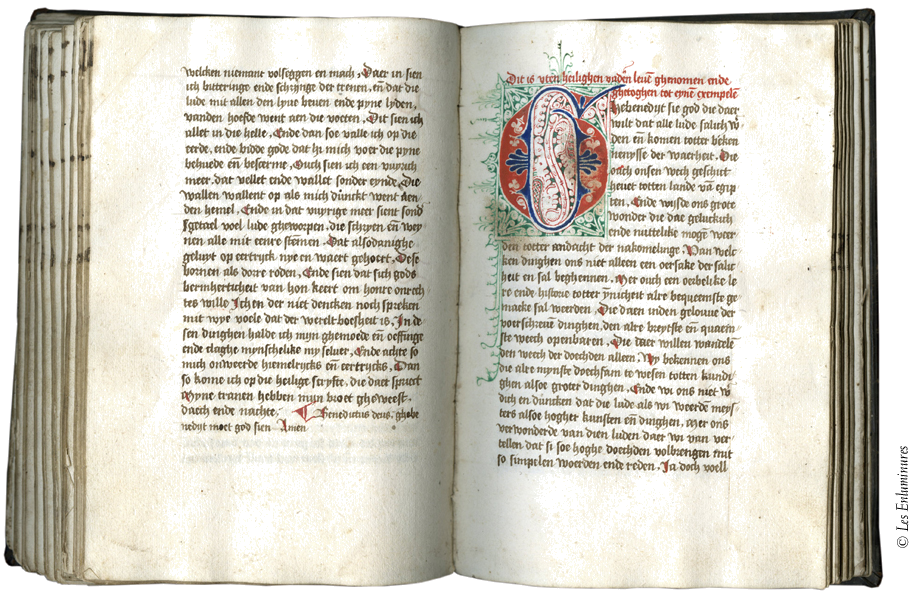 welcken niemant volseggen en mach, Daer in sien
ich bitteringe ende schrijnge der trenen, en̄ dat die
lude mit allen den lyue beuen ende pyne lyden,
vanden hoefde went aen die voeten, Dit sien ich
allet in die helle, Ende dan soe valle ich op die
eerde, ende bidde gode dat hi mich voer die pyne
behuede en̄ bescerme, Ouch sien ich een vuyrich
meer, dat vellet ende wallet sonder eynde, Die
wallen wallent op als mich dunckt went aen
den hemel, Ende in dat vuyrige meer sient sond
getael voel lude gheworpen, die schryen en̄ wey
nen alle mit eenre stemen, Dat alsodanighe
geluyt op eertryck nye en waert gehoert, Dese
bornen als dorre roden, Ende sien dat sich gods
bermherticheit van hon keert om honre onrech
tes wille, Ich en der niet dencken noch spreken
mit wye voele dat der werelt boesheit is, In de
sen dinghen halde ich myn ghemoede en̄ oeffinge
ende claghe mynschelike my seluer, Ende achte so
mich onweerde hiemelrycks en̄ eertrycks, Dan
so kome ich op die heilige scryfte, die daer spruct
Myne tranen hebben myn broet gheweest,
dach ende nachte, Benedictus deus, ghebe
nedyt moet god sien Amen
Dit is vten heilighen vadeu leuē ghenomen ende
ghetoghen tot eynē exempelē
Ghebenedyt sie god die daer
wilt dat alle lude salich w̄
den en̄ komen totter beken
tenysse der waerheit, Die
oach onsen wech geschict
heuet totten lande vā egip
ten, Ende wysde ons grote
wonder die dae geluckich
ende nuttelike mogē wer
den totter andacht der nakomelinge, Van wel
ken dinghen ons niet alleen een oersake der salic
heit en sal beghennen, Mer ouch een orbelike le
re ende historie totter ynicheit alre bequeemste ge
maeke sal werden, Die daen inden gelouue der
voerschreuē dinghen, den alre breytste en̄ quaem
ste weech openbaren, Die daer willen wandelē
den weech der doechden alleen, Wy bekennen ons
die alre mynste doechsam te wesen totten kundi
ghen alsoe groter dinghen, Ende wi ons niet w̄
dich en duncken dat die lude als wi weerdē meys
ters alsoe hogher kunsten en̄ dinghen, Mer ons
verwonderde van dien luden daer wi van ver
tellen dat si soe hoghe doechden volbrengen mit
so simpelen woerden ende reden, Ja doch voell
© Les Enluminures